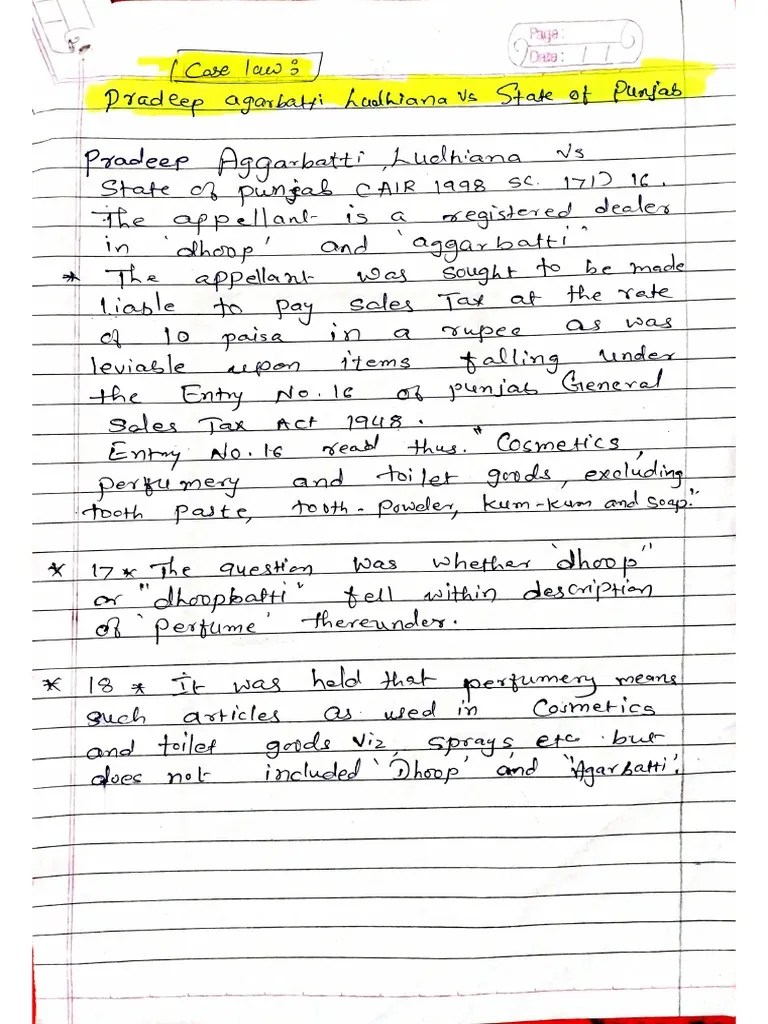 Page:
Date: / /
Case law:
Pradeep agarbatti Ludhiana vs State of Punjab
Pradeep Aggarbatti, Ludhiana vs
State of punjab (AIR 1998 SC. 171) 16.
The appellant is a registered dealer
in 'dhoop' and 'aggarbatti"
* The appellant was sought to be made
liable to pay sales Tax at the rate
of 10 paisa in a rupee as was
leviable upon items falling under
the Entry No. 16 of punjab General
Sales Tax Act 1948.
Entry No. 16 read thus. "Cosmetics,
perfumery and toilet goods, excluding
tooth paste, tooth-powder, kum-kum and soap."
* 17 * The question was whether 'dhoop"
or "dhoopbatti" fell within description
of 'perfume' thereunder.
* 18 * It was held that perfumery means
such articles as used in Cosmetics
and toilet goods viz, sprays etc but
does not included 'Dhoop' and "Agarbatti'.